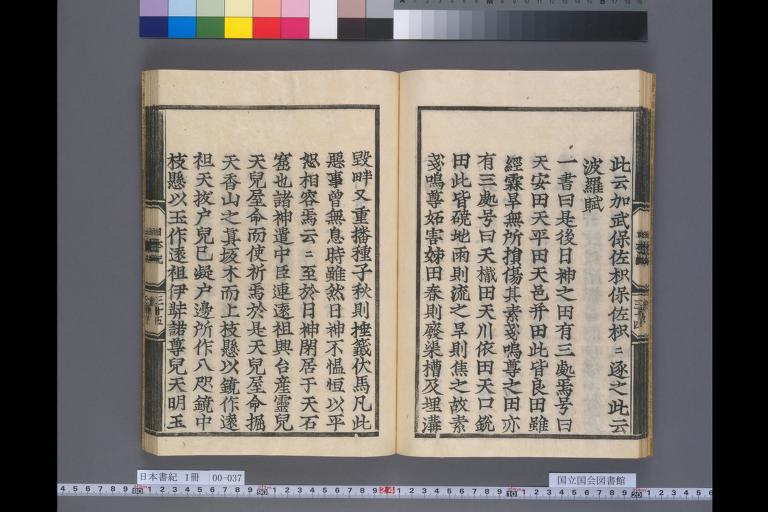 此云加武保佐枳保佐枳ニ逐之此云
波羅賦
一書曰是後日神之田有三處焉号曰
天安田天平田天邑并田此皆良田雖
經霖旱無所損傷其素戔鳴尊之田亦
有三處号曰天樴田天川依田天口鋭
田此皆磽地雨則流之旱則焦之故素
戔鳴尊妬害姉田春則廢渠槽及埋溝
毀畔又重播種子秋則挿籤伏馬凡此
惡事曽無息時雖然日神不慍恒以平
恕相容焉云ニ至於日神閉居于天石
窟也諸神遣中臣連遠祖興台産靈兒
天兒屋命而使祈焉於是天兒屋命掘
天香山之真坂木而上枝懸以鏡作遠
祖天抜戸兒已凝戸邊所作八咫鏡中
枝懸以玉作遠祖伊弉諾尊兒天明玉
三十五
日本書紀 1冊 00-037
国立国会図書館